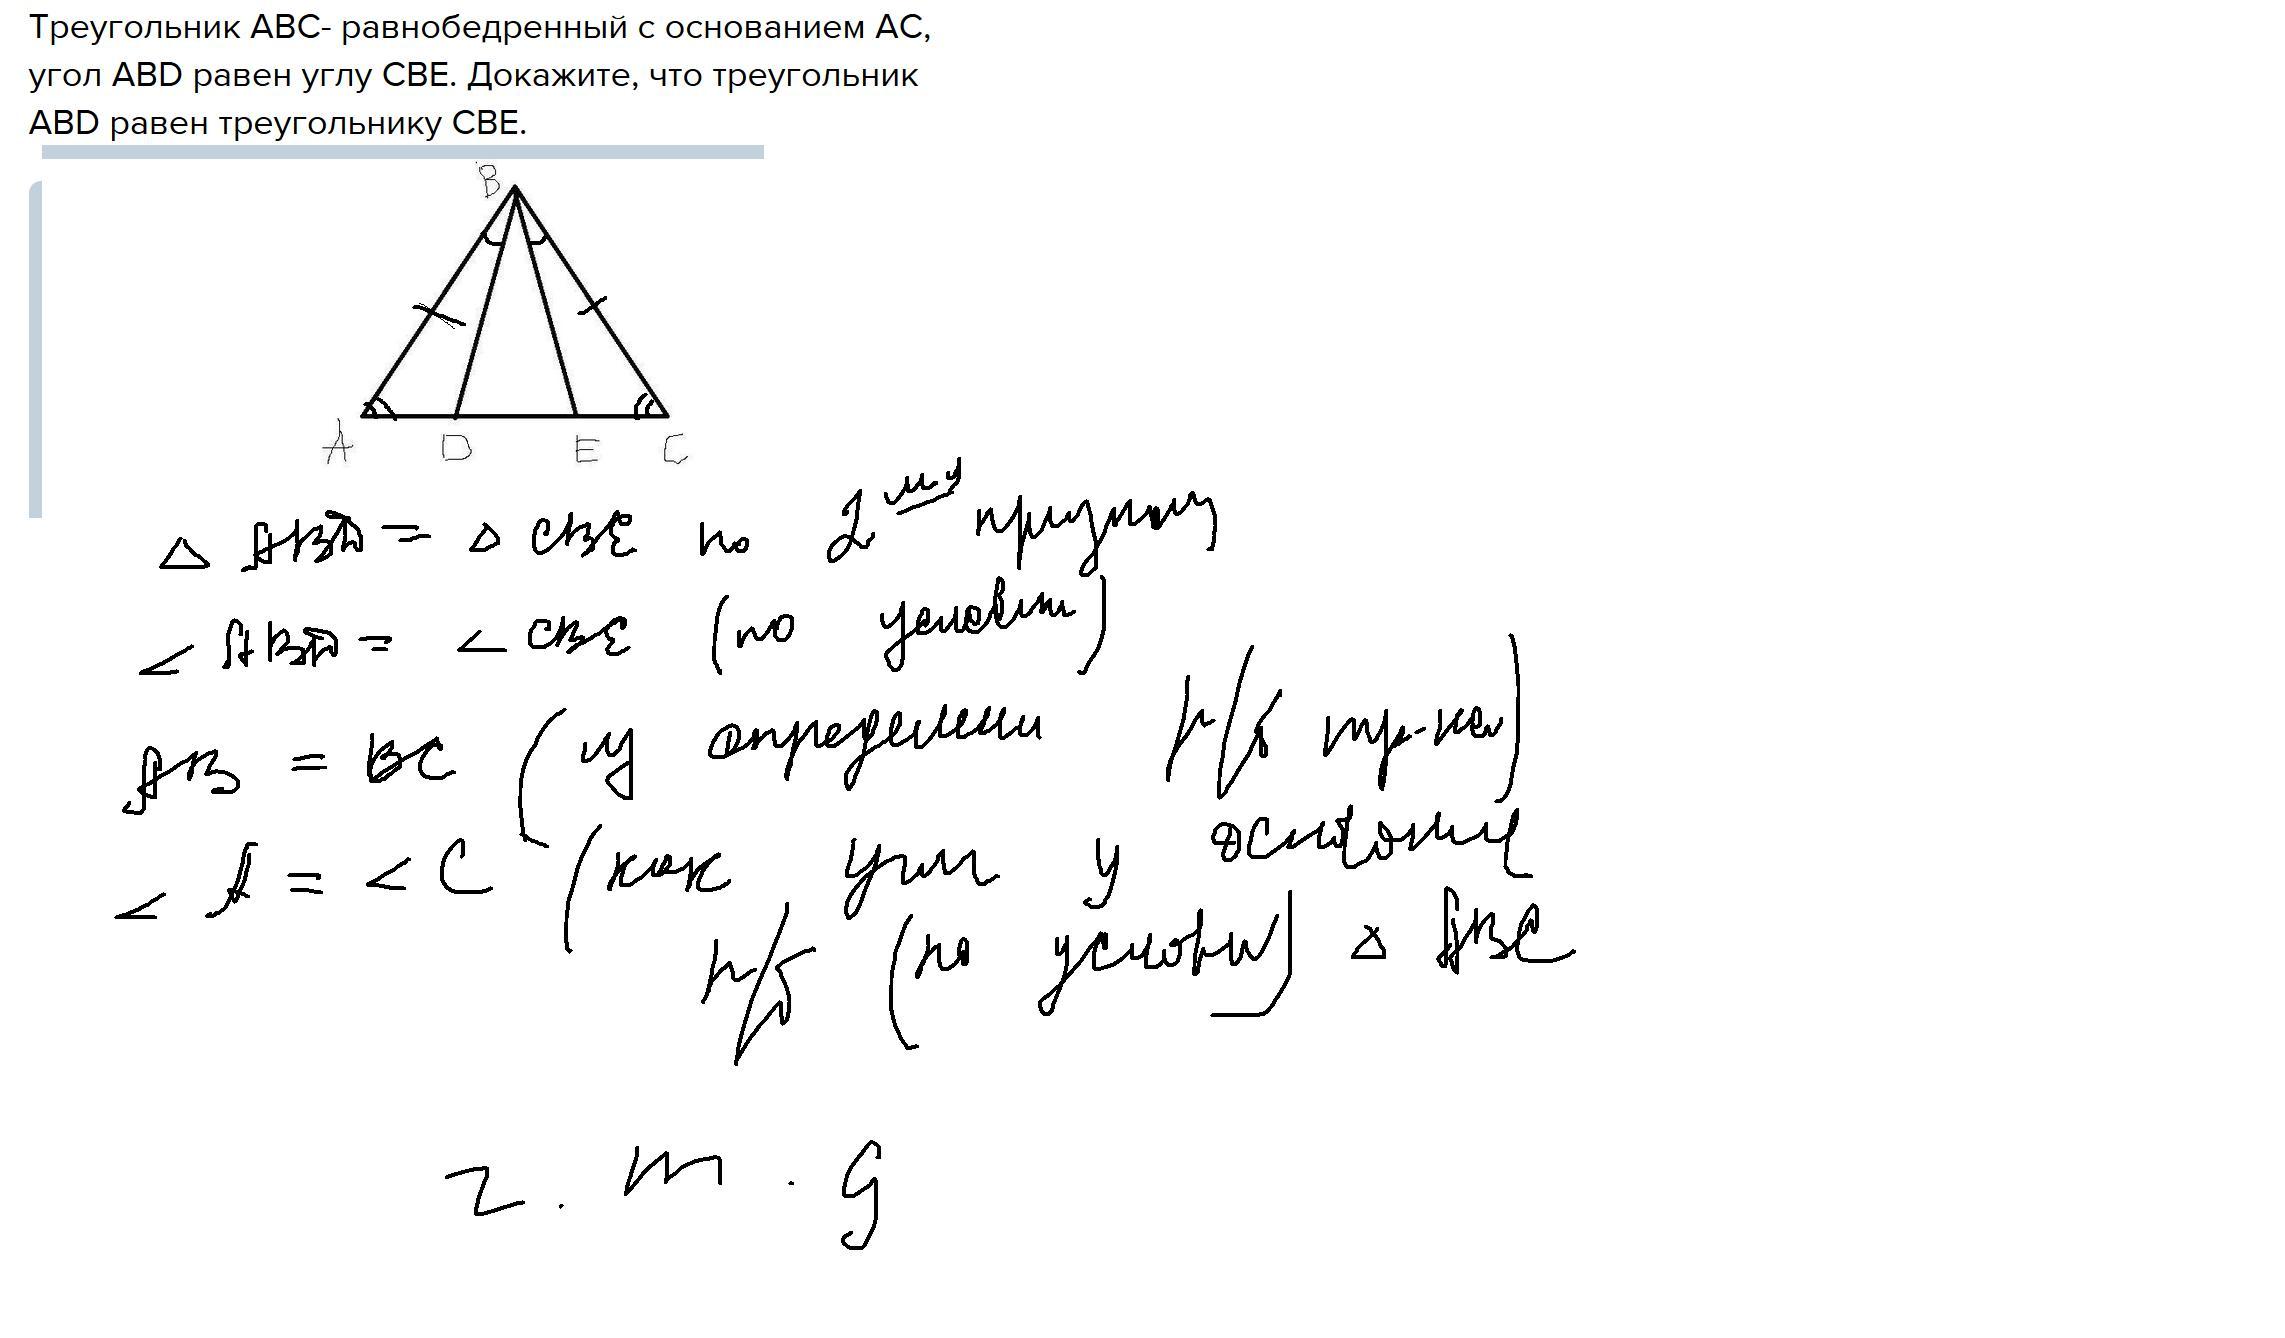 Треугольник ABC- равнобедренный с основанием AC,
угол ABD равен углу CBE. Докажите, что треугольник
ABD равен треугольнику CBE.
B
A D E C
△ ABD = △ CBE по 2му признаку
∠ ABD = ∠ CBE (по условию)
AB = BC (из определени р/б тр-ка)
∠ A = ∠ C (как углы у основание
р/б (по условию) △ ABC
ч. т. д